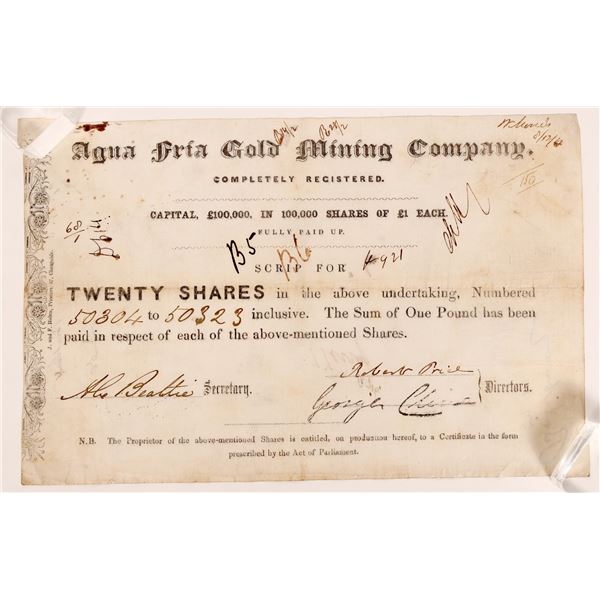 Agua Fria Gold Mining Company.
COMPLETELY REGISTERED.
CAPITAL, £100,000, IN 100,000 SHARES OF £1 EACH.
FULLY PAID UP.
68/1
B5
B6
SCRIP FOR
921
TWENTY SHARES in the above undertaking, Numbered
50304 to 50323 inclusive. The Sum of One Pound has been
paid in respect of each of the above-mentioned Shares.
Robert Price
Alx Beattie Secretary.
George
Directors.
N.B. The Proprietor of the above-mentioned Shares is entitled, on production hereof, to a Certificate in the form
prescribed by the Act of Parliament.